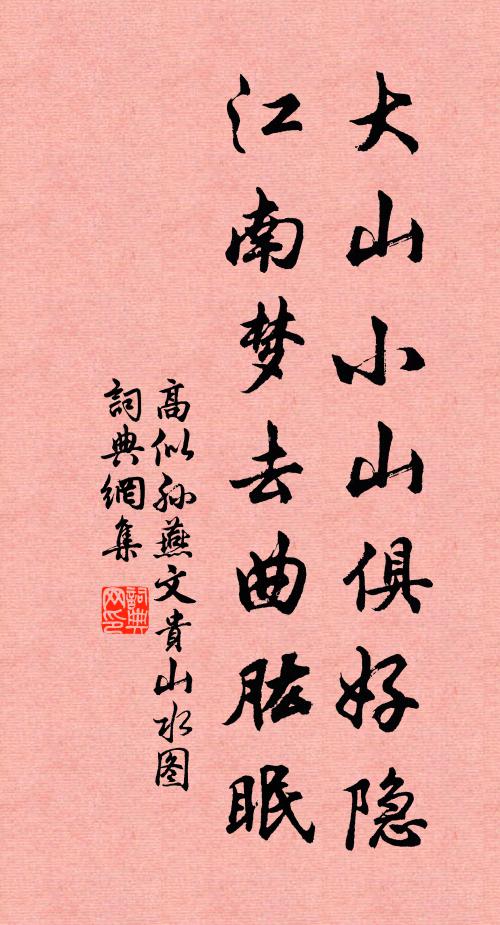 大山小山俱好隐
江南梦去曲肱眠
高似孙燕文貴山水图
詞典網集
詞典网印